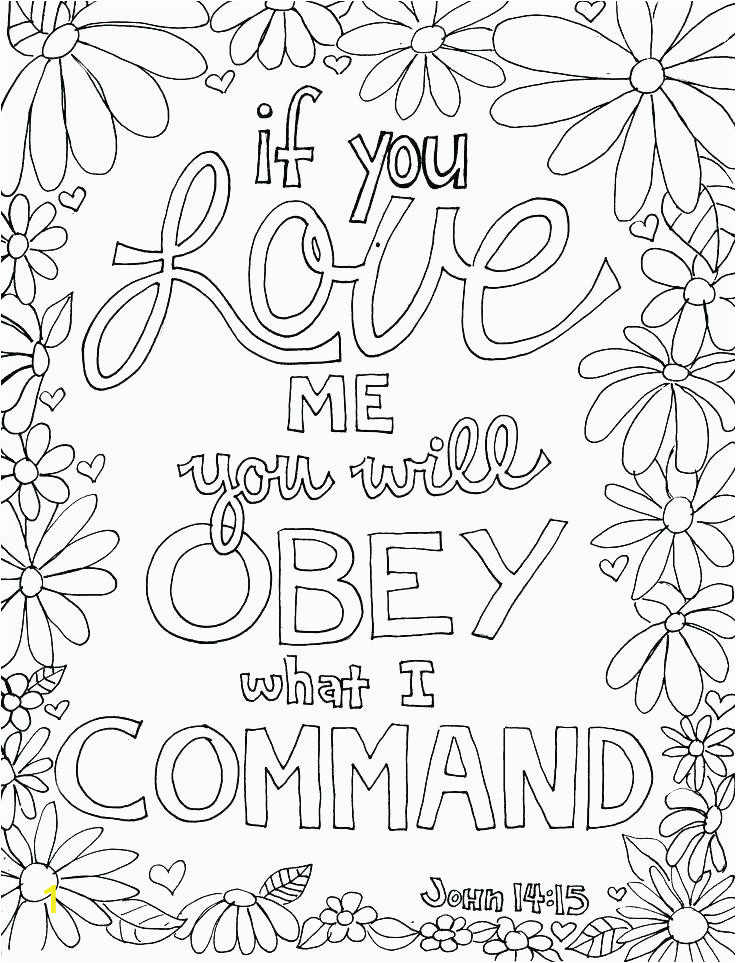 if you
Love
ME
you will
OBEY
what I
COMMAND
John 14:15
1